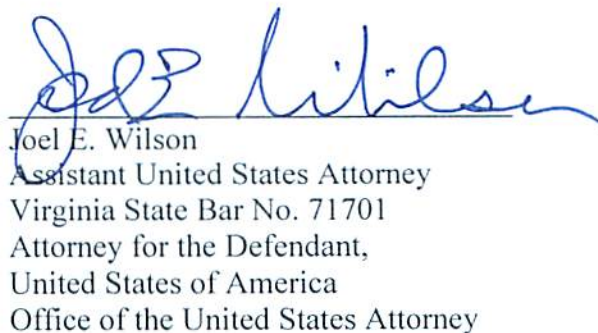 Joel E. Wilson
Joel E. Wilson
Assistant United States Attorney
Virginia State Bar No. 71701
Attorney for the Defendant,
United States of America
Office of the United States Attorney